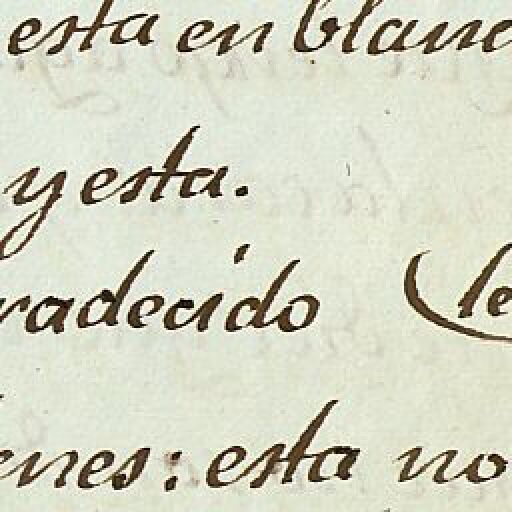 esta en blanc
y esta.
radecido (le
enes: esta no